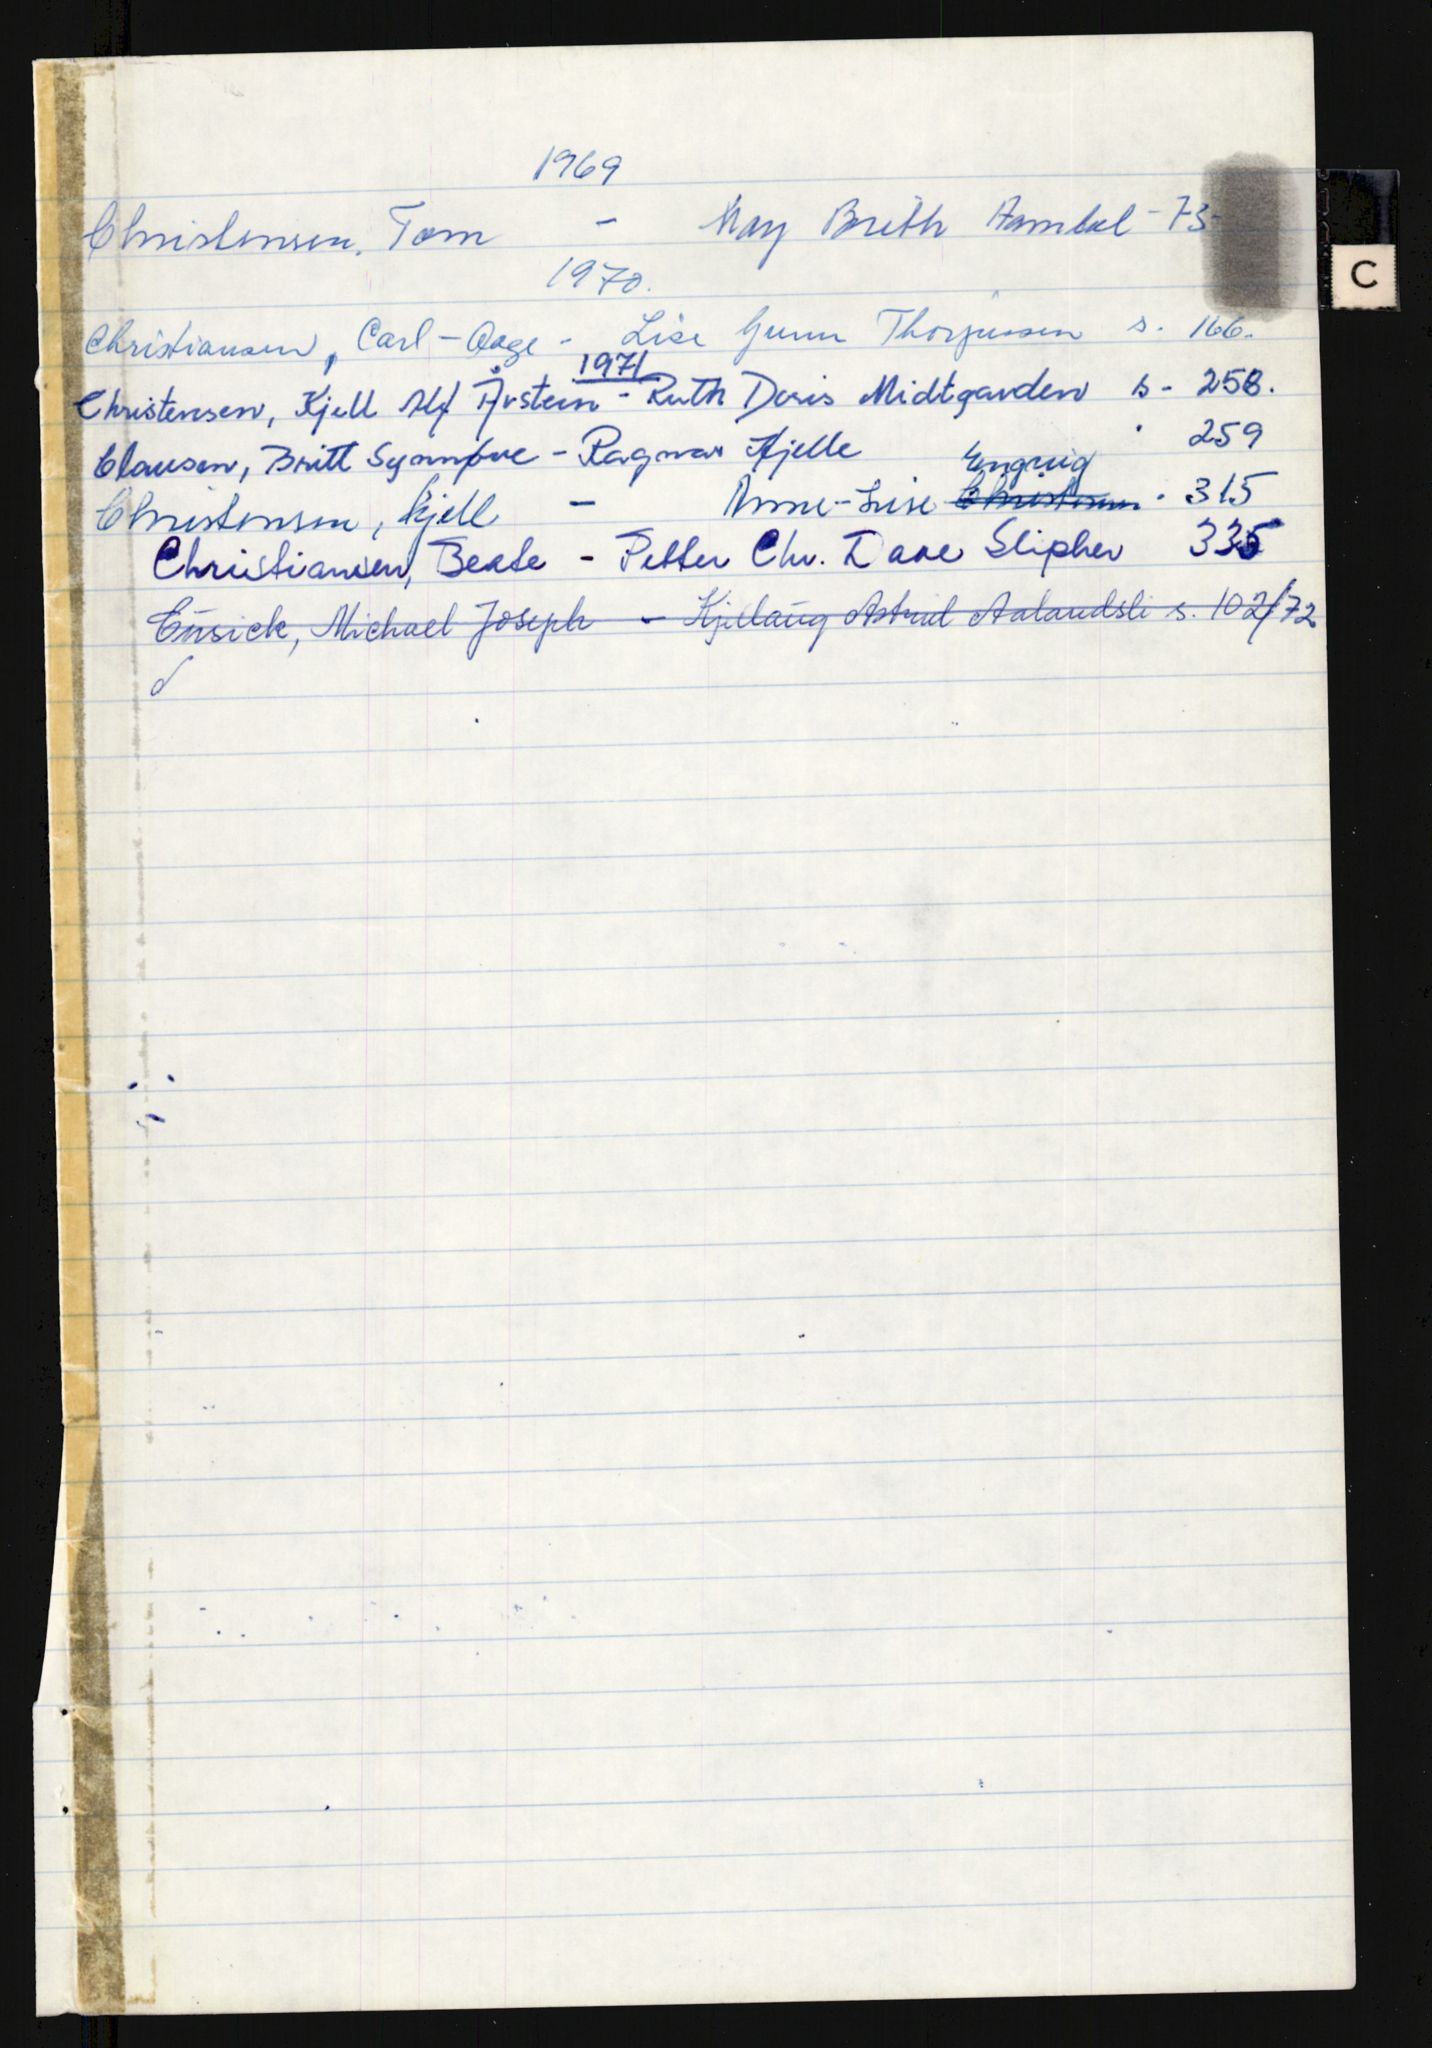 1969
Christensen, Tom - May Brith Aamdal - 73 -
C
1970.
Christiansen, Carl-Aage - Lise Gunn Thorjussen s. 166.
1971
Christensen, Kjell Alf Årstein - Ruth Doris Midtgarden s - 258.
Clausen, Britt Synnøve - Ragnar Hjelle " 259
Engvig
Christensen, Kjell - Anne-Lise Christensen . 315
Christiansen, Beate - Petter Chr. Dave Slipher 335
Cusick, Michael Joseph - Kjellaug Astrid Aalandsli s. 102/72